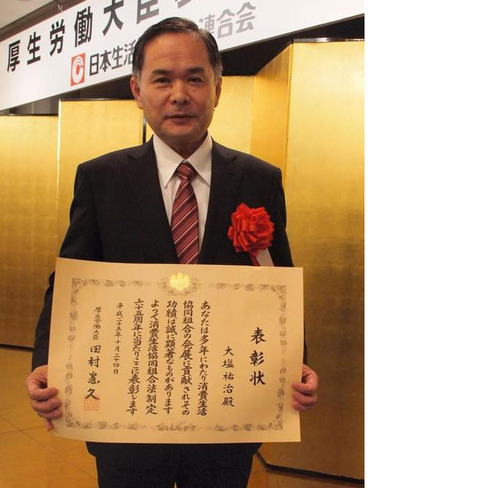 厚生労働大臣
日本生活
連合会
表彰状
大塩祐治殿
あなたは多年にわたり消費生活
協同組合の発展に貢献されその
功績は誠に顕著なものがあります
よって消費生活協同組合法制定
六十五周年に当たりここに表彰します
平成二十五年十月二十四日
厚生労働大臣 田村憲久